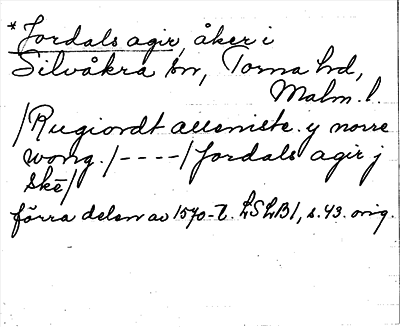 *Jordals agir, åker i
Silvåkra sn, Torna hd,
Malm. l.
/Rugiordt allsniste. y norre
wong./----/Jordals agir j
Skē/
förra delen av 1570-t. LSLB1, s. 43. orig.